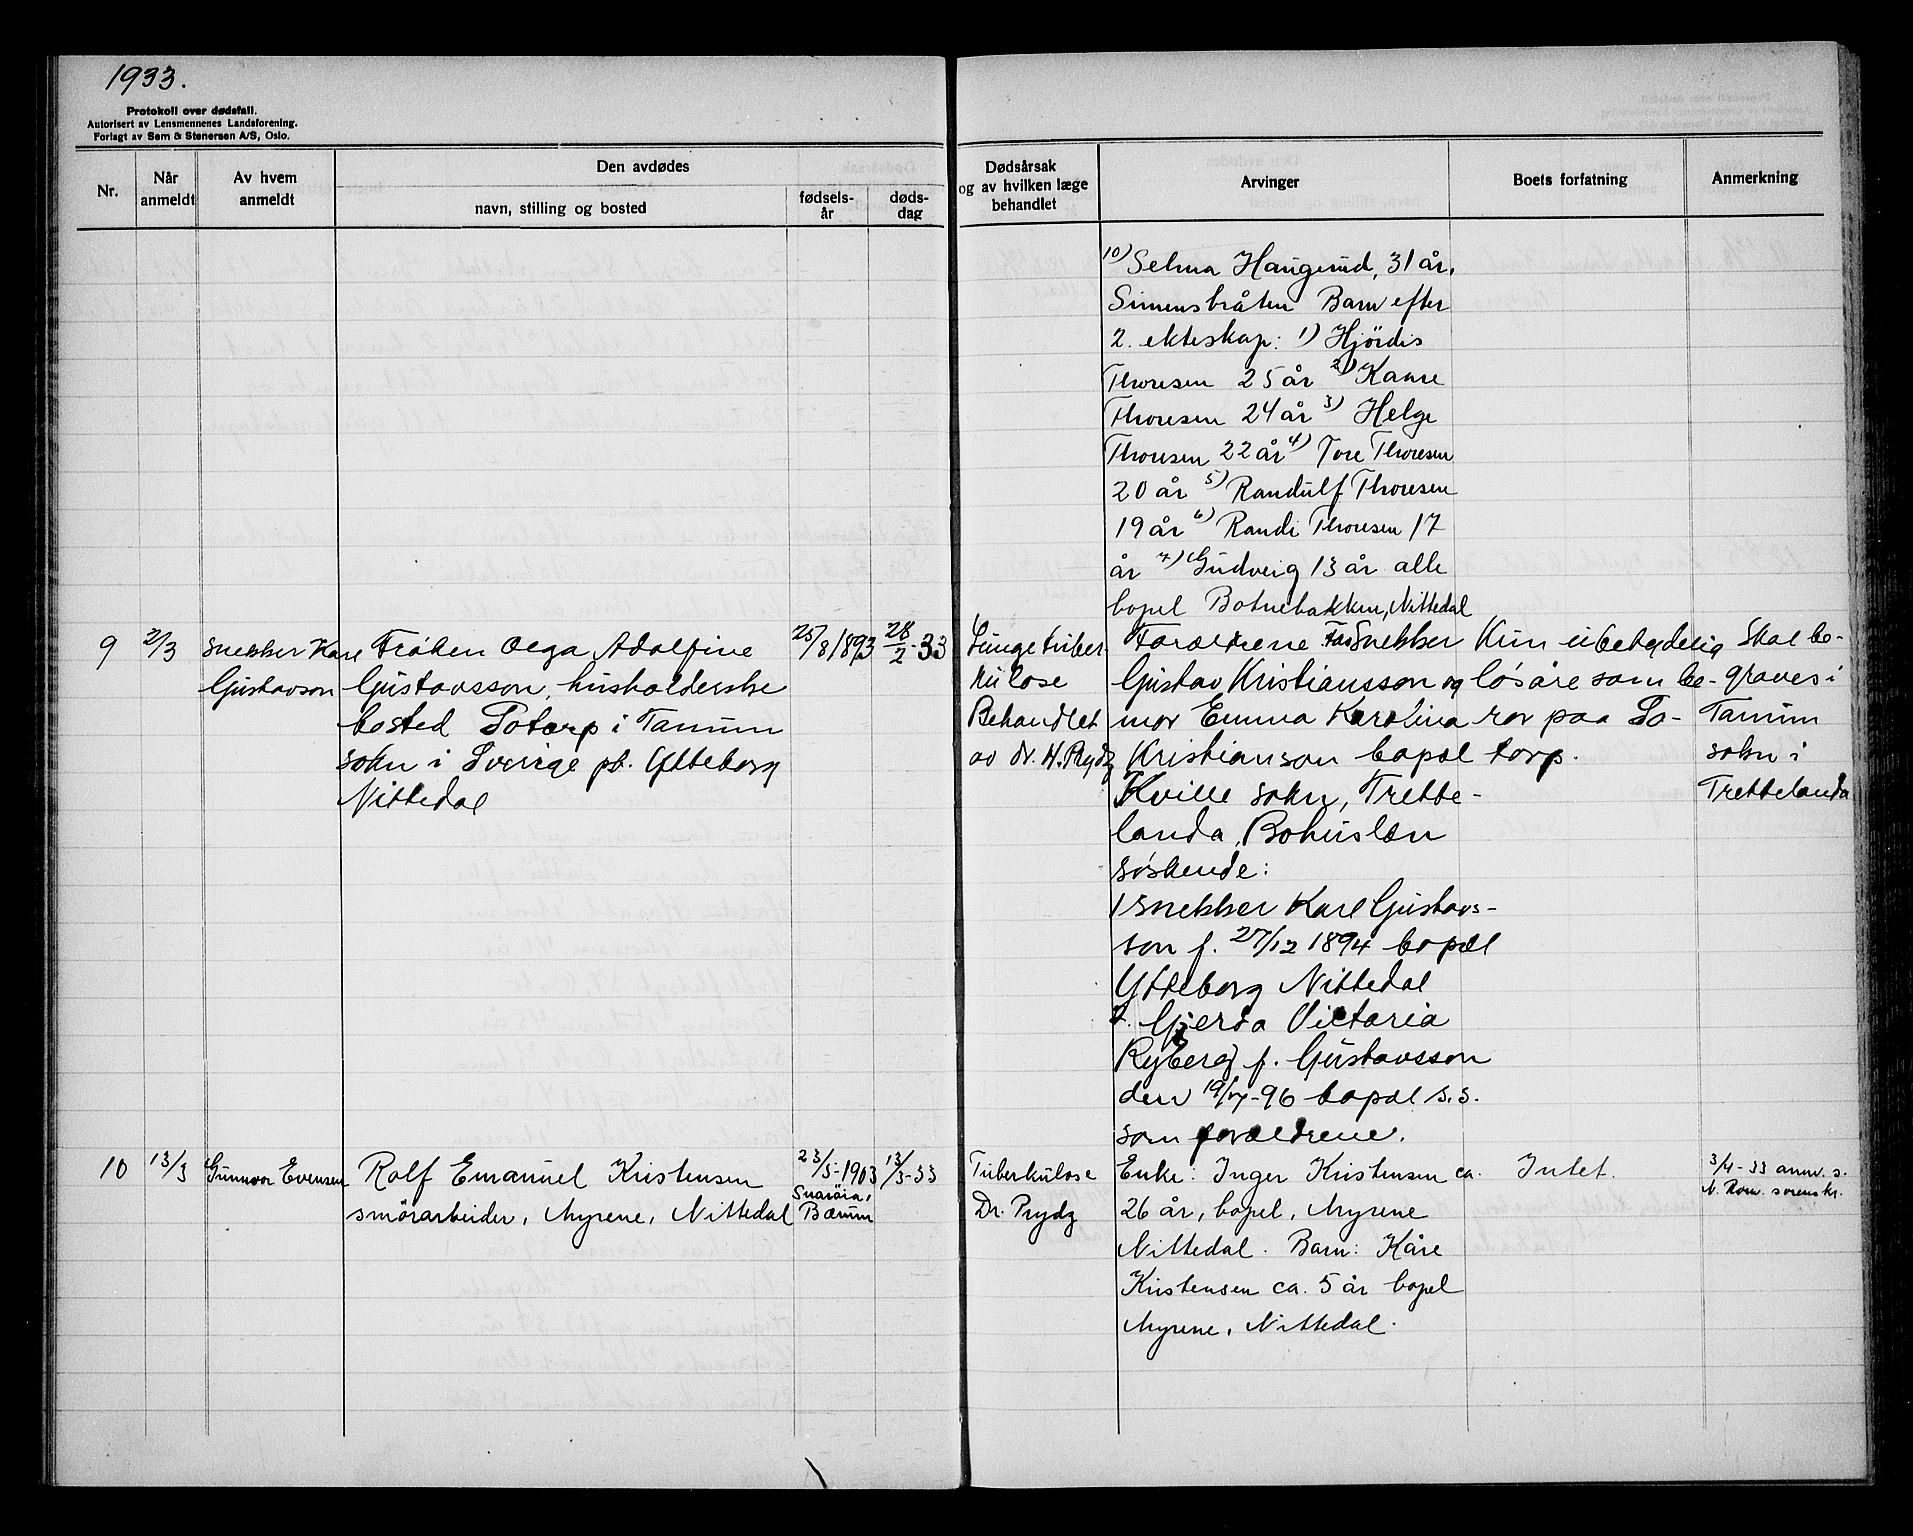 1933.
Protokoll over dødsfall.
Autorisert av Lensmennenes Landsforening.
Forlagt av Sem & Stenersen A/S, Oslo.
Nr.
Når anmeldt
Av hvem anmeldt
Den avdødes
navn, stilling og bosted
fødsels-
år
døds-
dag
Dødsårsak
og av hvilken læge
behandlet
Arvinger
Boets forfatning
Anmerkning
10) Selma Haugerud, 31 år,
Simensbråten Barn efter
2. ekteskap: 1) Hjördis
Thoresen 25 år 2) Kaare
Thoresen 24 år 3) Helge
Thoresen 22 år 4) Tore Thoresen
20 år 5) Randulf Thoresen
19 år 6) Randi Thoresen 17
år 7) Gudveig 13 år alle
bopel Botnebakken, Nittedal
9
2/3
snekker Karl
Gustavson
Frøken Olga Adolfine
Gustavsson, husholderske
bosted Sotorp i Tanum
sokn i Sverige pt. Ytteborg
Nittedal
25/8 1893
28/2-33
Lungetuber-
kulose
Behandlet
av dr. H. Prydz
Forældrene Far Snekker
Gustav Kristiansson og
mor Emma Karolina
Kristianson bopæl
Kville sokn, Trette-
landa, Bohuslæn
søskende:
1 snekker Karl Gustavs-
son f. 27/12 1894 bopæl
Ytteborg Nittedal
2. Gjerda Victoria
Ryberg f. Gustavsson
den 19/7-96 bopæl s.s.
som forældrene.
Kun ubetydelig
løsøre som be-
ror paa So-
torp.
Skal be-
graves i
Tanum
sokn i
Trettelanda
10
13/3
Gunnvor Evensen
Rolf Emanuel Kristensen
smörarbeider, Myrene, Nittedal
23/5-1903
Snaröia,
Bærum
13/3-33
Tuberkulose
Dr. Prydz
Enke: Inger Kristensen ca.
26 år, bopel, Myrene
Nittedal. Barn: Kåre
Kristensen ca. 5 år bopel
Myrene, Nittedal.
Intet.
3/4-33 anm. s.
N. Rom. sorenskr.